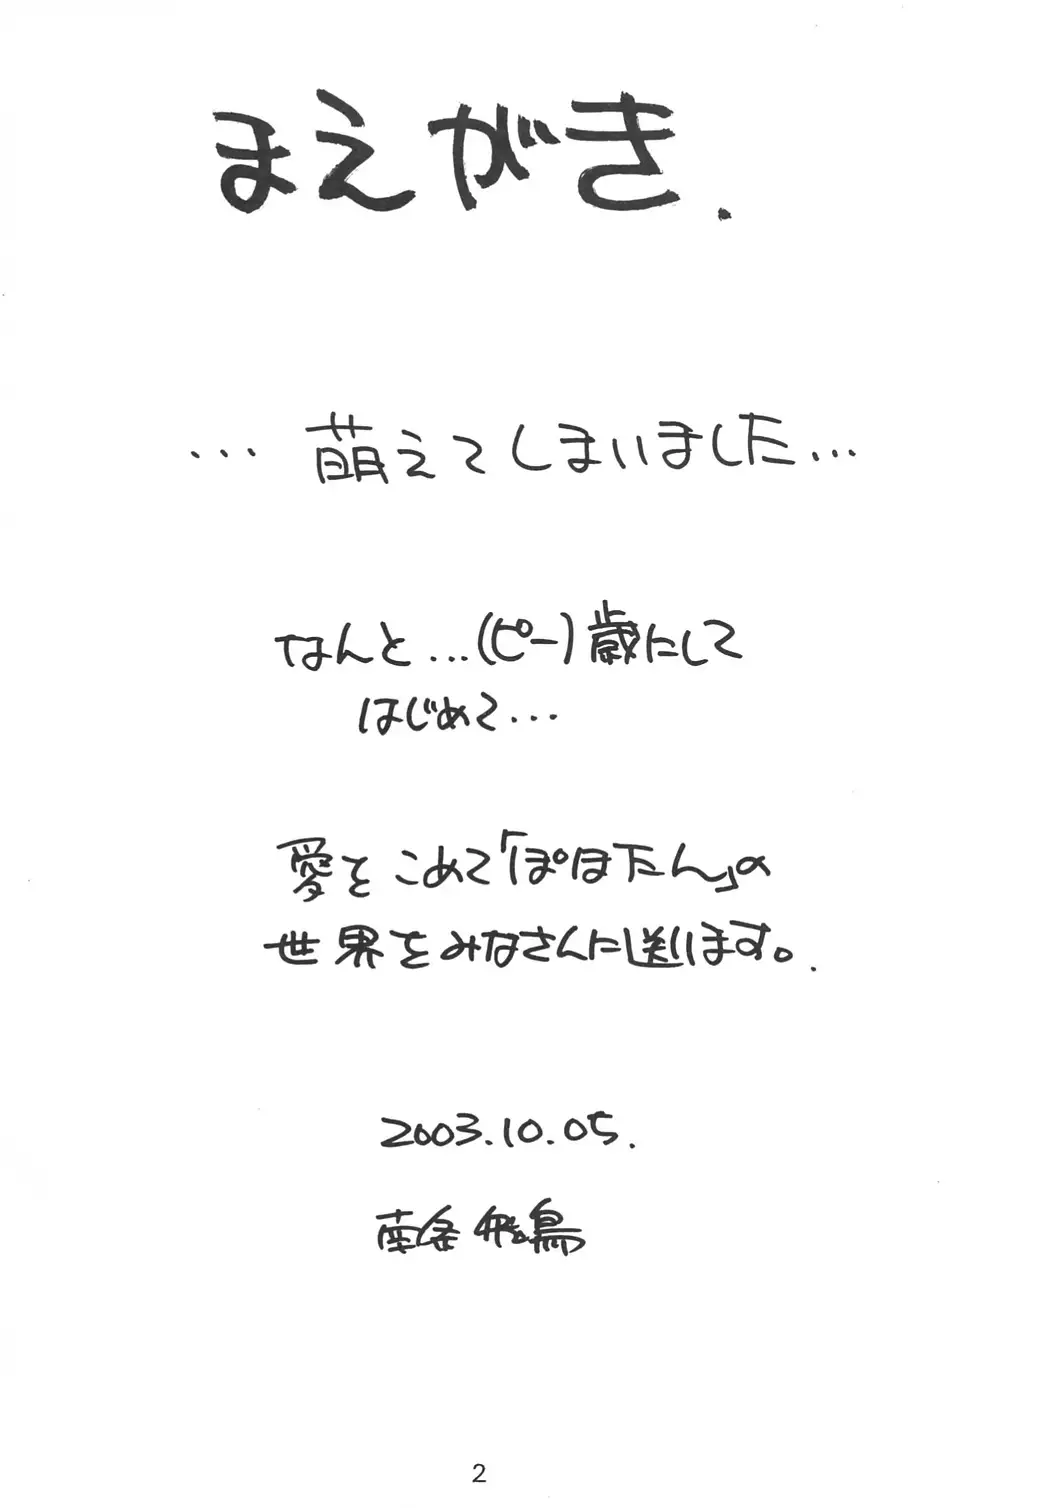 まえがき.
… 萌えてしまいました…
なんと…(ピー)歳にして
はじめて…
愛をこめて「ぽぽたん」の
世界をみなさんに送ります。.
2003.10.05.
南条飛鳥
2